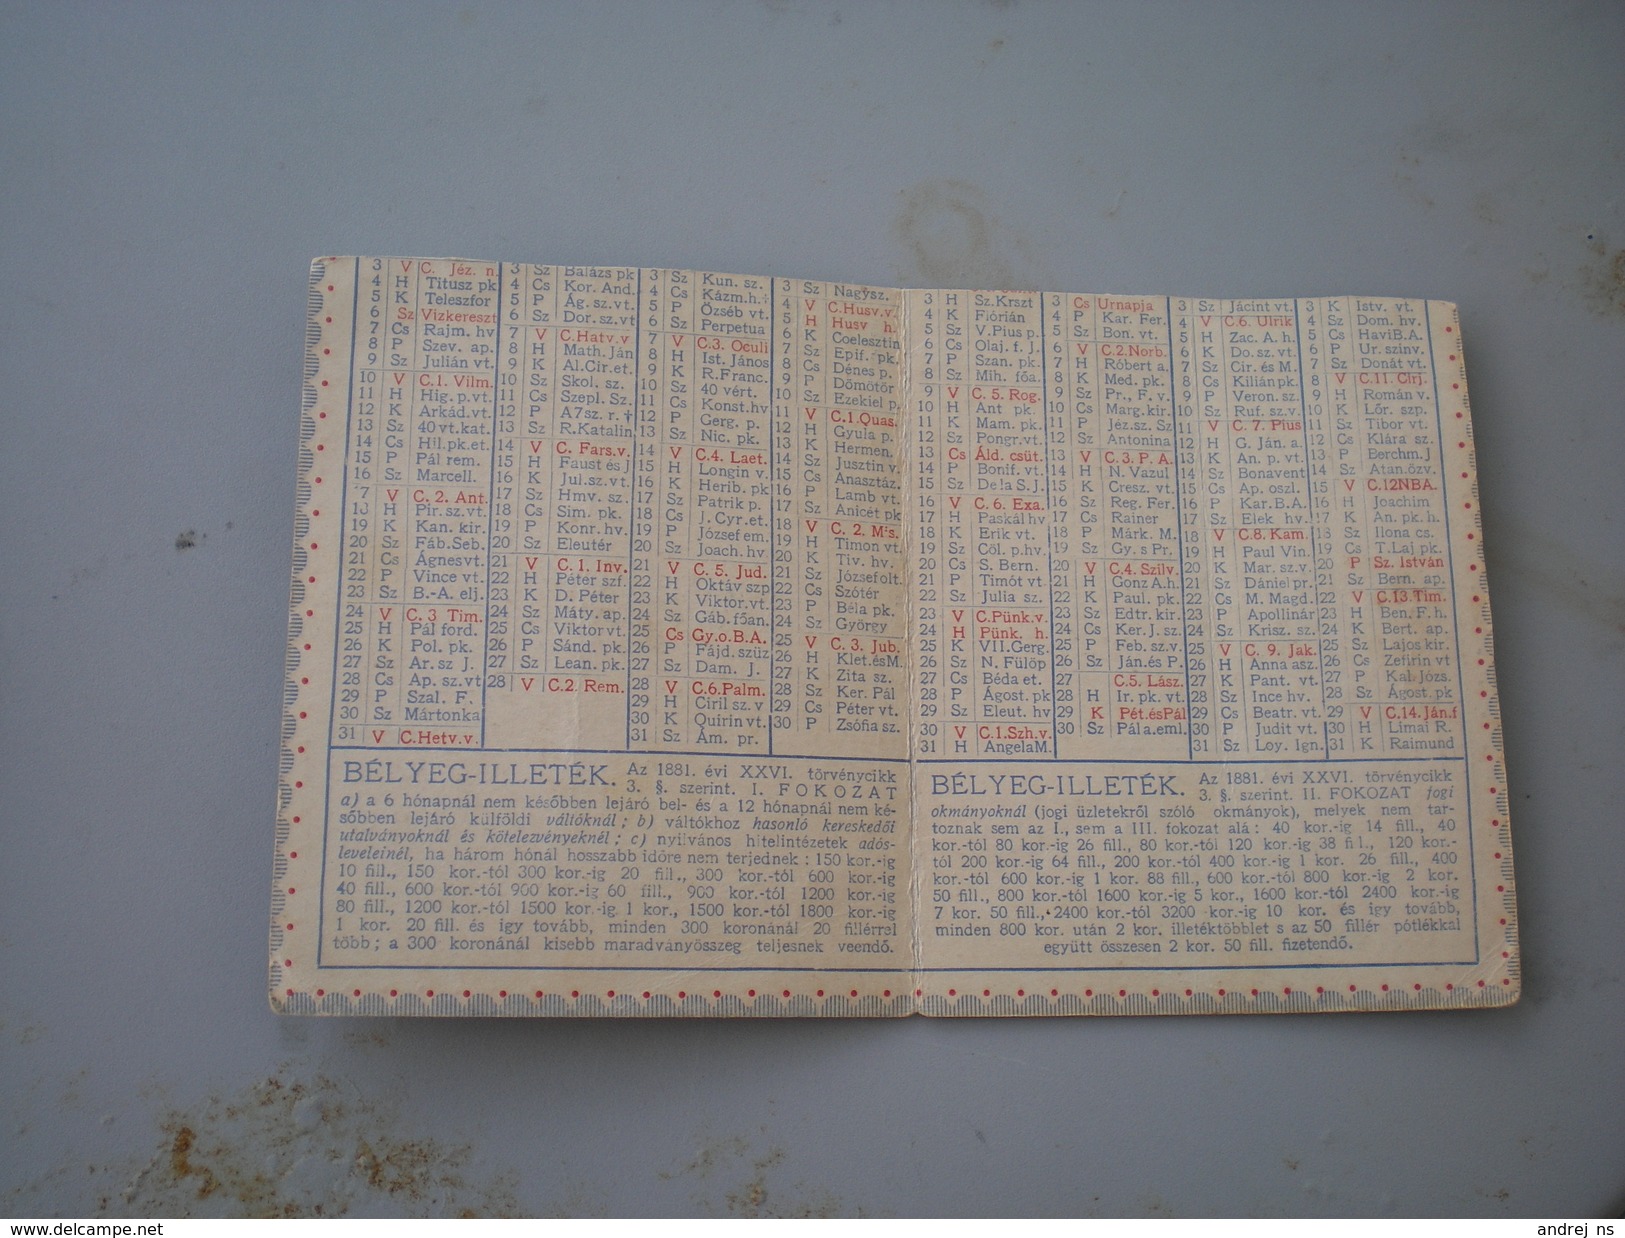 3 V C. Jéz. n.
4 H Titusz pk
5 K Teleszfor
6 Sz Vizkereszt
7 Cs Rajm. hv
8 P Szev. ap.
9 Sz Julián vt.
10 V C.1. Vilm.
11 H Hig. p.vt.
12 K Arkád.vt.
13 Sz 40 vt.kat.
14 Cs Hil.pk.et.
15 P Pál rem.
16 Sz Marcell.
17 V C. 2. Ant.
18 H Pir.sz.vt.
19 K Kan. kir.
20 Sz Fáb.Seb.
21 Cs Ágnesvt.
22 P Vince vt.
23 Sz B.-A. elj.
24 V C. 3 Tim.
25 H Pál ford.
26 K Pol. pk.
27 Sz Ar. sz J.
28 Cs Ap. sz.vt
29 P Szal. F.
30 Sz Mártonka
31 V C.Hetv.v.
3 Sz Balázs pk
4 Cs Kor. And.
5 P Ág. sz.vt.
6 Sz Dor. sz.vt
7 V C.Hatv.v
8 H Math. Ján
9 K Al.Cir.et.
10 Sz Skol. sz.
11 Cs Szepl. Sz.
12 P A7sz. r. †
13 Sz R.Katalin
14 V C. Fars.v.
15 H Faust és J
16 K Jul.sz.vt.
17 Sz Hmv. sz.
18 Cs Sim. pk.
19 P Konr. hv.
20 Sz Eleutér
21 V C. 1. Inv.
22 H Péter szf.
23 K D. Péter
24 Sz Máty. ap.
25 Cs Viktor vt.
26 P Sánd. pk.
27 Sz Lean. pk.
28 V C.2. Rem.
3 Sz Kun. sz.
4 Cs Kázm.h.†
5 P Özséb vt.
6 Sz Perpetua
7 V C.3. Oculi
8 H Ist. János
9 K R.Franc.
10 Sz 40 vért.
11 Cs Konst.hv
12 P Gerg. p.
13 Sz Nic. pk.
14 V C.4. Laet.
15 H Longin v.
16 K Herib. pk
17 Sz Patrik p.
18 Cs J. Cyr.et.
19 P József em.
20 Sz Joach. hv.
21 V C. 5. Jud.
22 H Oktáv szp
23 K Viktor.vt.
24 Sz Gáb.főan.
25 Cs Gy.o.B.A.
26 P Fájd.szüz
27 Sz Dam. J.
28 V C.6.Palm.
29 H Ciril sz. v
30 K Quirin vt.
31 Sz Ám. pr.
3 Sz Nagysz.
4 V C.Husv.v.
5 H Husv h.
6 K Coelesztin
7 Sz Epif. pk.
8 Cs Dénes p.
9 P Dömötör
10 Sz Ezekiel p.
11 V C.1.Quas.
12 H Gyula p.
13 K Hermen.
14 Sz Jusztin v.
15 Cs Anasztáz.
16 P Lamb vt.
17 Sz Anicét pk
18 V C. 2. Mis.
19 H Timon vt.
20 K Tiv. hv.
21 Sz Józsefolt.
22 Cs Szótér
23 P Béla pk.
24 Sz György
25 V C. 3. Jub.
26 H Klet.ésM.
27 K Zita sz.
28 Sz Ker. Pál
29 Cs Péter vt.
30 P Zsófia sz.
BÉLYEG-ILLETÉK. Az 1881. évi XXVI. törvénycikk
3. §. szerint. I. FOKOZAT
a) a 6 hónapnál nem későbben lejáró bel- és a 12 hónapnál nem ké-
sőbben lejáró külföldi váltóknál; b) váltókhoz hasonló kereskedői
utalványoknál és kötelezvényeknél; c) nyilvános hitelintézetek adós-
leveleinél, ha három hónál hosszabb időre nem terjednek: 150 kor.-ig
10 fill., 150 kor.-tól 300 kor.-ig 20 fill., 300 kor.-tól 600 kor.-ig
40 fill., 600 kor.-tól 900 kor.-ig 60 fill., 900 kor.-tól 1200 kor.-ig
80 fill., 1200 kor.-tól 1500 kor.-ig 1 kor., 1500 kor.-tól 1800 kor.-ig
1 kor. 20 fill. és így tovább, minden 300 koronánál 20 fillérrel
több; a 300 koronánál kisebb maradványösszeg teljesnek veendő.
3 H Sz.Krszt
4 K Flórián
5 Sz V.Pius p.
6 Cs Olaj. f. J.
7 P Szan. pk.
8 Sz Mih. főa.
9 V C. 5. Rog.
10 H Ant pk.
11 K Mam. pk.
12 Sz Pongr.vt.
13 Cs Áld. csüt.
14 P Bonif. vt.
15 Sz De la S.J.
16 V C.6. Exa.
17 H Paskál hv
18 K Erik vt.
19 Sz Cöl. p.hv.
20 Cs S. Bern.
21 P Timót vt
22 Sz Julia sz.
23 V C.Pünk.v.
24 H Pünk. h.
25 K VII.Gerg.
26 Sz N. Fülöp
27 Cs Béda et.
28 P Ágost. pk
29 Sz Eleut. hv
30 V C.1.Szh.v.
31 H Angela M.
3 Cs Urnapja
4 P Kar. Fer.
5 Sz Bon. vt.
6 V C.2.Norb.
7 H Róbert a.
8 K Med. pk.
9 Sz Pr., F. v.
10 Cs Marg.kir.
11 P Jéz.sz. Sz
12 Sz Antonina
13 V C. 3. P. A.
14 H N. Vazul
15 K Cresz. vt.
16 Sz Reg. Fer.
17 Cs Rainer
18 P Márk. M.
19 Sz Gy. s Pr.
20 V C.4. Szilv.
21 H Gonz A.h.
22 K Paul. pk.
23 Sz Edtr. kir.
24 Cs Ker.J. sz.
25 P Feb. vt.
26 Sz Ján.és P.
27 C.5. Lász.
28 H Ir. pk. vt.
29 K Pét.ésPál
30 Sz Pál a.eml.
3 Sz Jácint vt.
4 V C.6. Ulrik
5 H Zac. A. h.
6 K Do. sz. vt.
7 Sz Cir. és M.
8 Cs Kilián pk.
9 P Veron. sz.
10 Sz Ruf. sz.v.
11 V C. 7. Pius
12 H G. Ján. a.
13 K An. p. vt.
14 Sz Bonavent
15 Cs Ap. oszl.
16 P Kar.B.A.
17 Sz Elek hv.
18 V C.8. Kam.
19 H Paul Vin.
20 K Mar. sz.v.
21 Sz Dániel pr.
22 Cs M. Magd.
23 P Apollinár
24 Sz Krisz. sz.
25 V C. 9. Jak.
26 H Anna asz.
27 K Pant. vt.
28 Sz Ince hv.
29 Cs Beatr. vt.
30 P Judit vt.
31 Sz Loy. Ign.
3 K Istv. vt.
4 Sz Dom. hv.
5 Cs HaviB.A.
6 P Ur. szinv.
7 Sz Donát vt.
8 V C.11. Cirj.
9 H Román v.
10 K Lőr. szp.
11 Sz Tibor vt.
12 Cs Klára sz.
13 P Berchm.J
14 Sz Atan.özv.
15 V C.12NBA.
16 H Joachim
17 K An. pk. h.
18 Sz Ilona cs.
19 Cs T.Laj pk.
20 P Sz. István
21 Sz Bern. ap.
22 V C.13.Tim.
23 H Ben. F. h.
24 K Bert. ap.
25 Sz Lajos kir.
26 Cs Zefirin vt
27 P Kal. Józs.
28 Sz Ágost. pk
29 V C.14.Ján.f
30 H Limai R.
31 K Raimund
BÉLYEG-ILLETÉK. Az 1881. évi XXVI. törvénycikk
3. §. szerint. II. FOKOZAT jogi
okmányoknál (jogi üzletekről szóló okmányok), melyek nem tar-
toznak sem az I., sem a III. fokozat alá: 40 kor.-ig 14 fill., 40
kor.-tól 80 kor.-ig 26 fill., 80 kor.-tól 120 kor.-ig 38 fill., 120 kor.-
tól 200 kor.-ig 64 fill., 200 kor.-tól 400 kor.-ig 1 kor. 26 fill., 400
kor.-tól 600 kor.-ig 1 kor. 88 fill., 600 kor.-tól 800 kor.-ig 2 kor.
50 fill., 800 kor.-tól 1600 kor.-ig 5 kor., 1600 kor.-tól 2400 kor.-ig
7 kor. 50 fill., 2400 kor.-tól 3200 kor.-ig 10 kor. és így tovább,
minden 800 kor. után 2 kor. illetéktöbblet s az 50 fillér pótlékkal
együtt összesen 2 kor. 50 fill. fizetendő.
www.delcampe.net
andrej_ns